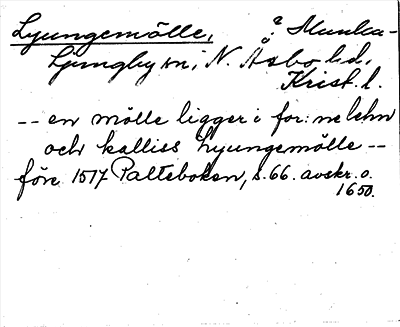 Ljungemölle, ? Munka-
Ljungby sn, N. Åsbo hd.
Krist. l.
-- en mölle ligger i for:ne lehn
och kalliss Lyungemölle --
före 1517 Palteboken, s. 66. avskr. o.
1650.